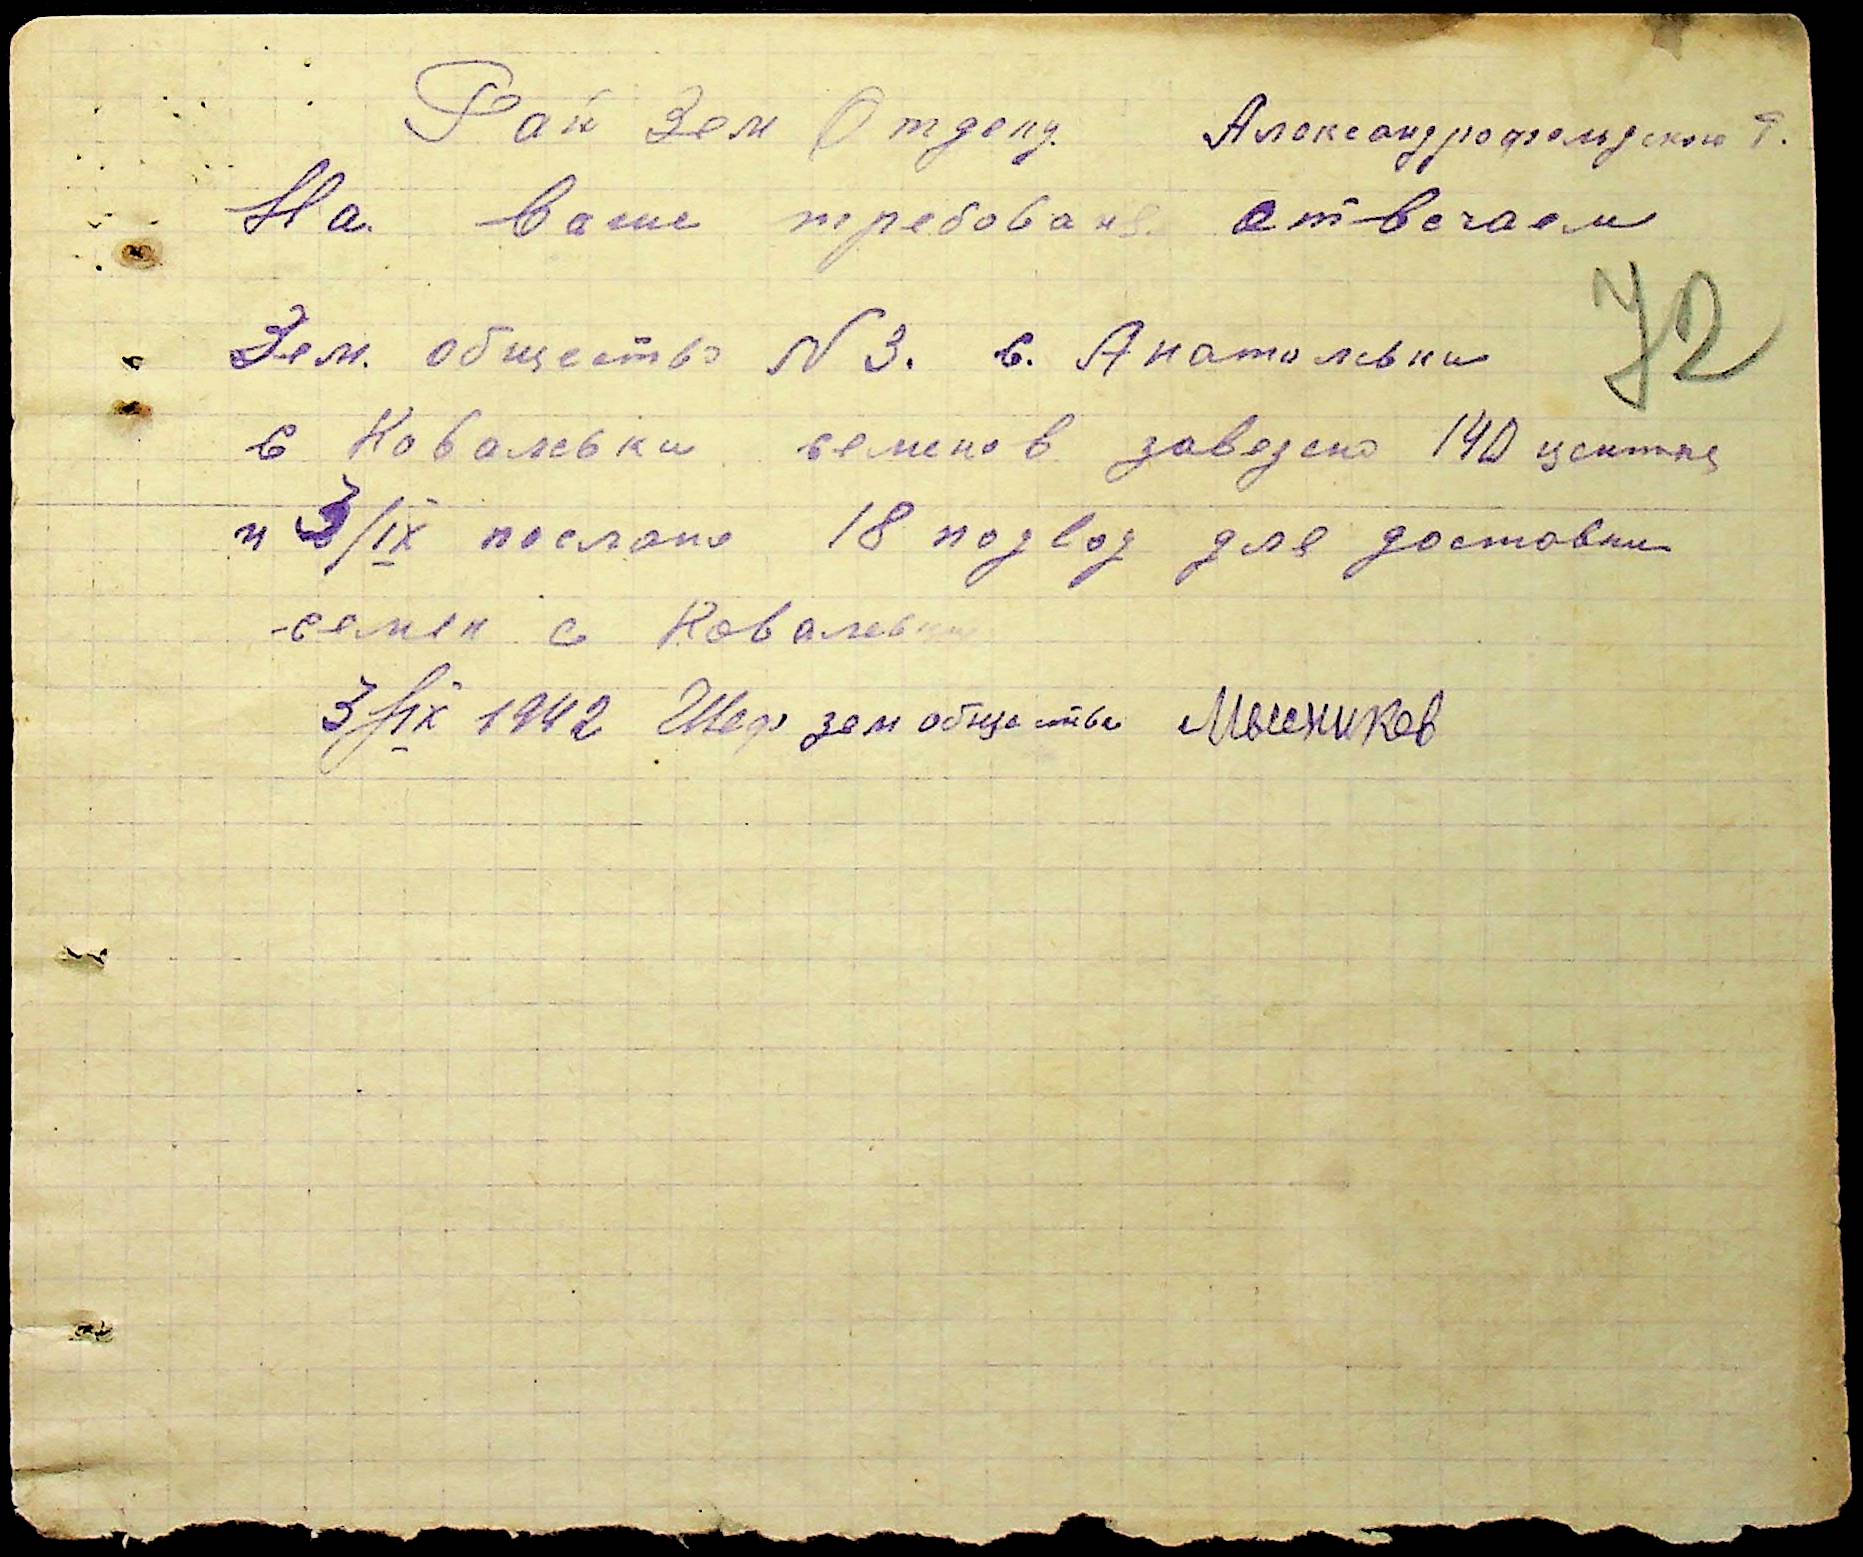 Рай Зем Отделу. Александрофельдского Р.
На Ваше требование отвечаем
72
Зем. общество N 3. с. Анатольевки
с Ковалевки семенов завезено 140 центне
и 3/IX послано 18 подвод для доставки
семен с Ковалевки
3/IX 1942 Шеф земобщества